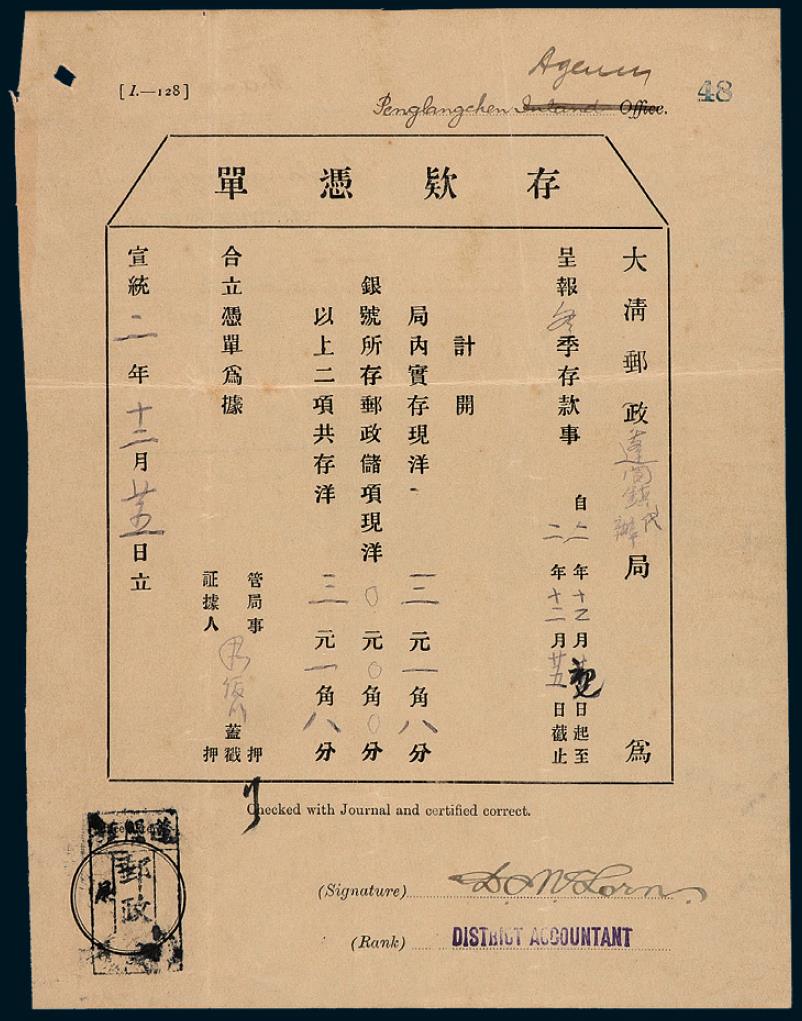 [I.—128]
Agency
48
Penglangchen Inland Office.
存欵憑單
大清郵政蓬閬鎮代辦局為
呈報冬季存款事
自二年十二月 日起至
二年十二月廿五日截止
計開
局內實存現洋 三元一角八分
銀號所存郵政儲項現洋 〇元〇角〇分
以上二項共存洋 三元一角八分
合立憑單爲據
管局事 蓋戳押
証據人 押
宣統二年十二月廿五日立
Checked with Journal and certified correct.
郵政
(Signature)
(Rank) DISTRICT ACCOUNTANT